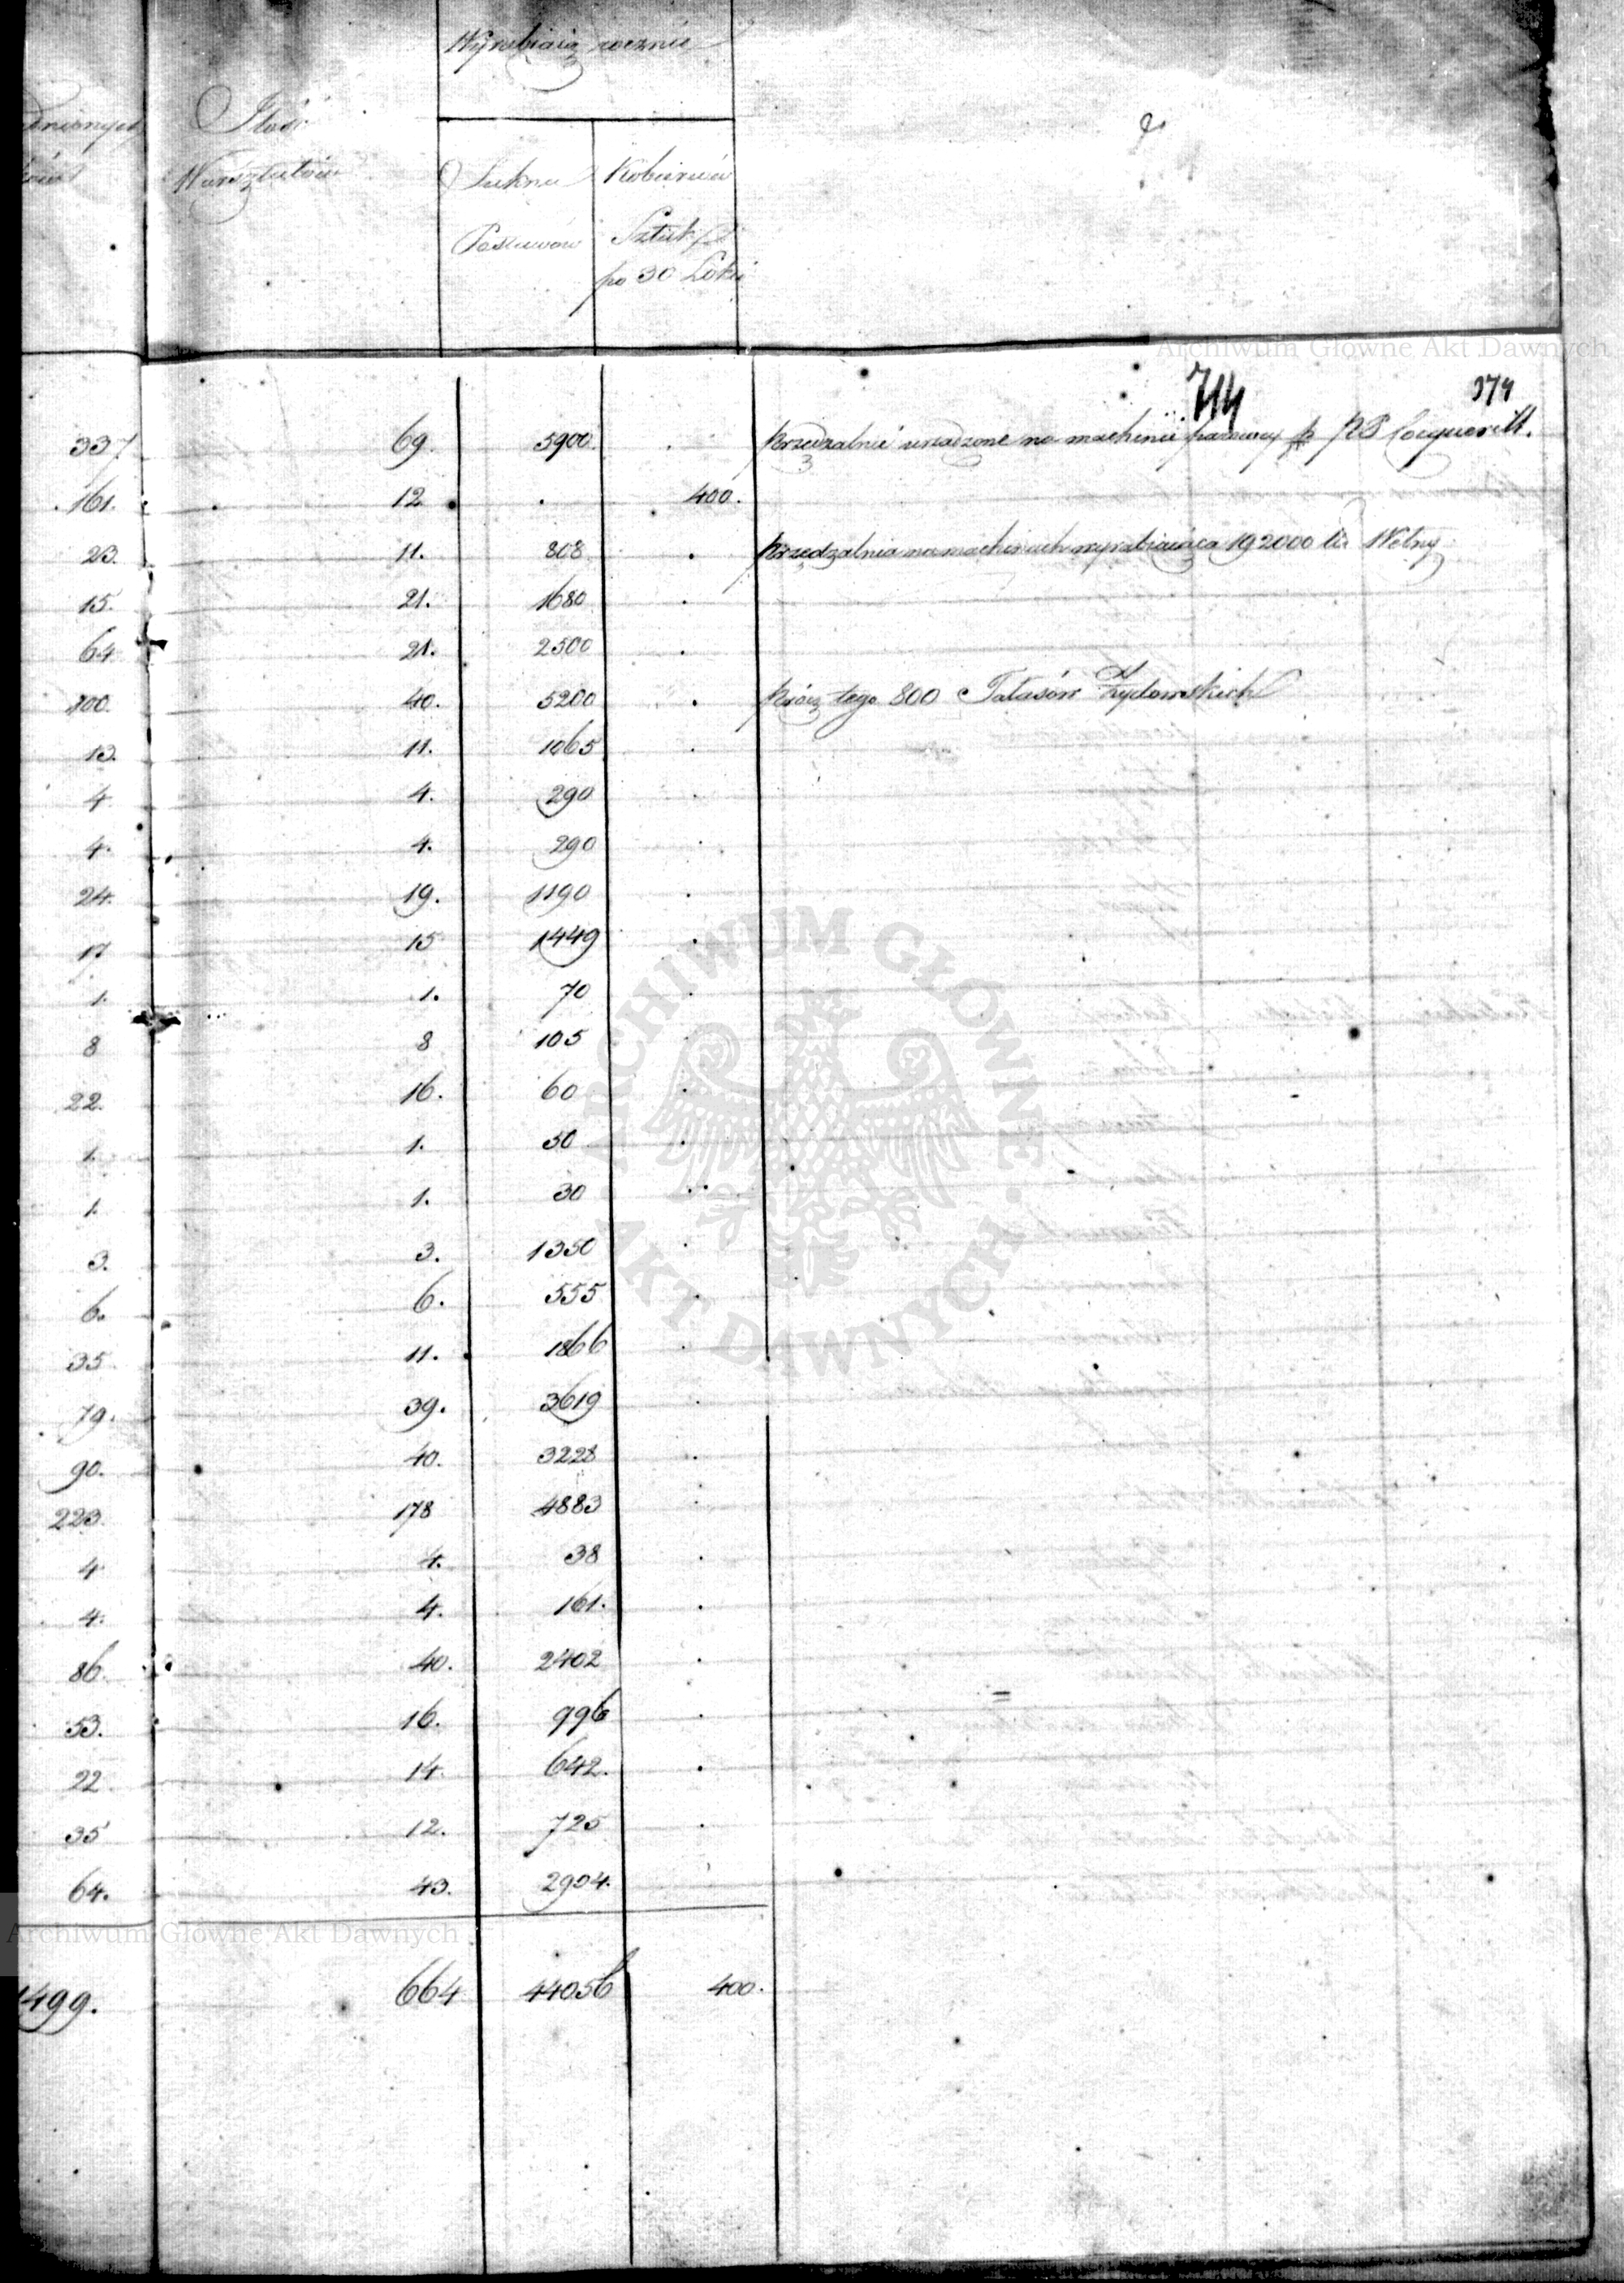 Wyrabiaią rocznie
Ilość
Warsztatów
Sukna
Postawów
Kobierców
Sztuk
po 30 Łokci
Archiwum Główne Akt Dawnych
714 374
337 69. 5900. . Przędzalnie urządzone na machinie parowey p PP Cocquerill.
161. 12 . 400.
23. 11. 808 . Przędzalnia na machinach wyrabiaiąca 192000 Wełny
15. 21. 1680 .
64 21. 2500 .
100. 40. 5200 . Prócz tego 800 Tałasów Żydowskich
13. 11. 1065 .
4 4. 290 .
4. 4. 290 .
24. 19. 1190 .
17 15 1449 .
1. 1. 70 .
8 8 105 .
22. 16. 60 .
1. 1. 50 .
1. 1. 30 .
3. 3. 1350 .
6. 6. 555 .
35 11. 1866 .
79. 39. 3619 .
90. 40. 3228 .
223 178 4883 .
4 4. 38 .
4. 4. 161. .
86. 40. 2402 .
53. 16. 996 .
22 14. 642. .
35 12. 725 .
64. 43. 2904.
Archiwum Główne Akt Dawnych
1499. 664 44056 400.
ARCHIWUM GŁÓWNE AKT DAWNYCH